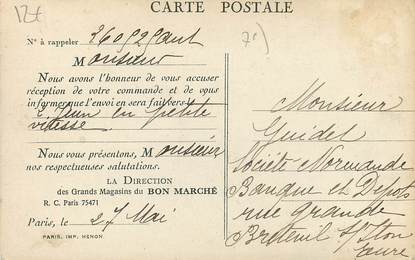 12t
CARTE POSTALE
N° à rappeler
7c)
Monsieur
Nous avons l'honneur de vous accuser
réception de votre commande et de vous
informer que l'envoi en sera fait vers le
2 Juin en petite
vitesse
Nous vous présentons, Monsieur
nos respectueuses salutations.
LA DIRECTION
des Grands Magasins du BON MARCHÉ
R. C. Paris 75471
Paris, le 27 Mai
PARIS, IMP. HENON.
Monsieur
Guidel
Société Normande
Banque et Dépots
rue Grande
Breteuil s/ Iton
Eure